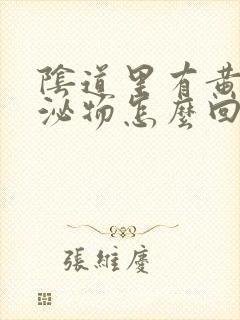 陰道里有黃
泌物怎麼回
張維慶